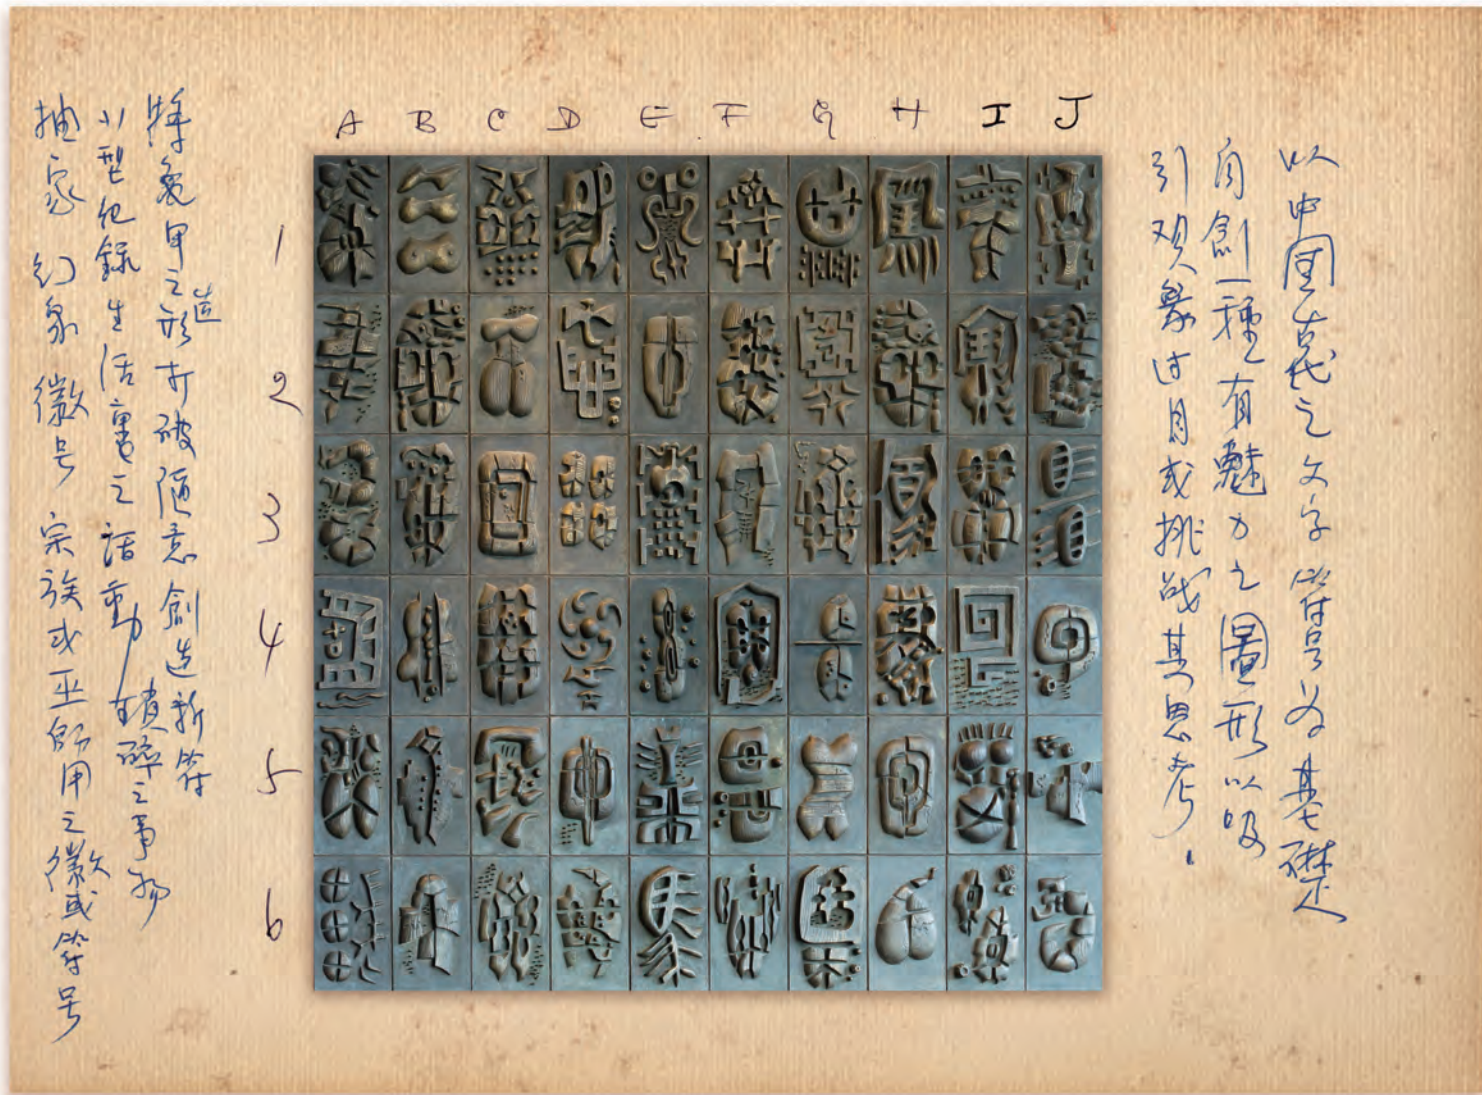 A B C D E F G H I J
1
2
3
4
5
6
以中国古代之文字符号为基礎
自創一種有魅力之圖形以吸
引观象过目或挑战其思考.
将象甲之形造打破随意創造新符
小型化録生活裏之活動 瑣碎之事物
抽象 幻象 徽号 宗族或巫師用之徽或符号